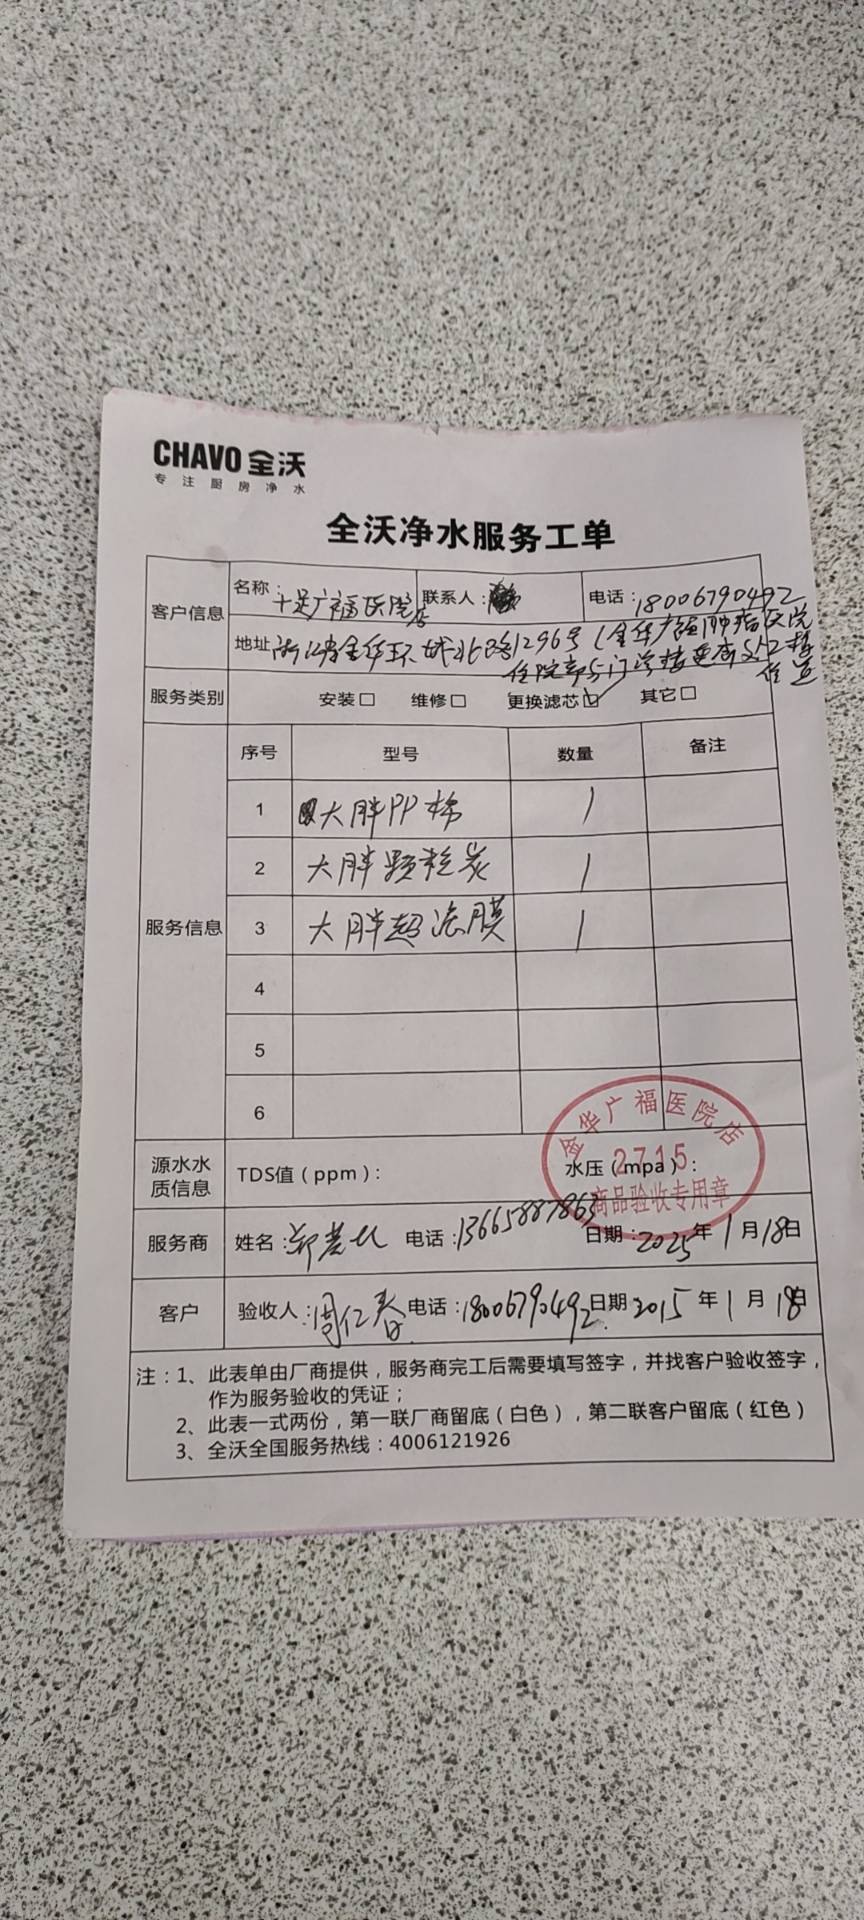 CHAVO 全沃
专注厨房净水
全沃净水服务工单
客户信息 名称：十足广福医院店 联系人： 电话：18006790492
地址 浙江省金华环城北路1296号（金华广福肿瘤医院
住院部与门诊楼连廊
服务类别 安装□ 维修□ 更换滤芯☑ 其它□
服务信息 序号 型号 数量 备注
1 大胖PP棉 1
2 大胖颗粒炭 1
3 大胖超滤膜 1
4
5
6
源水水质信息 TDS值（ppm）： 水压（mpa）：
金华广福医院店
2715
商品验收专用章
服务商 姓名：郑 电话：13665887863 日期：2025年1月18日
客户 验收人：周仁春 电话：18006790492 日期 2015年1月18日
注：1、此表单由厂商提供，服务商完工后需要填写签字，并找客户验收签字，
作为服务验收的凭证；
2、此表一式两份，第一联厂商留底（白色），第二联客户留底（红色）
3、全沃全国服务热线：4006121926